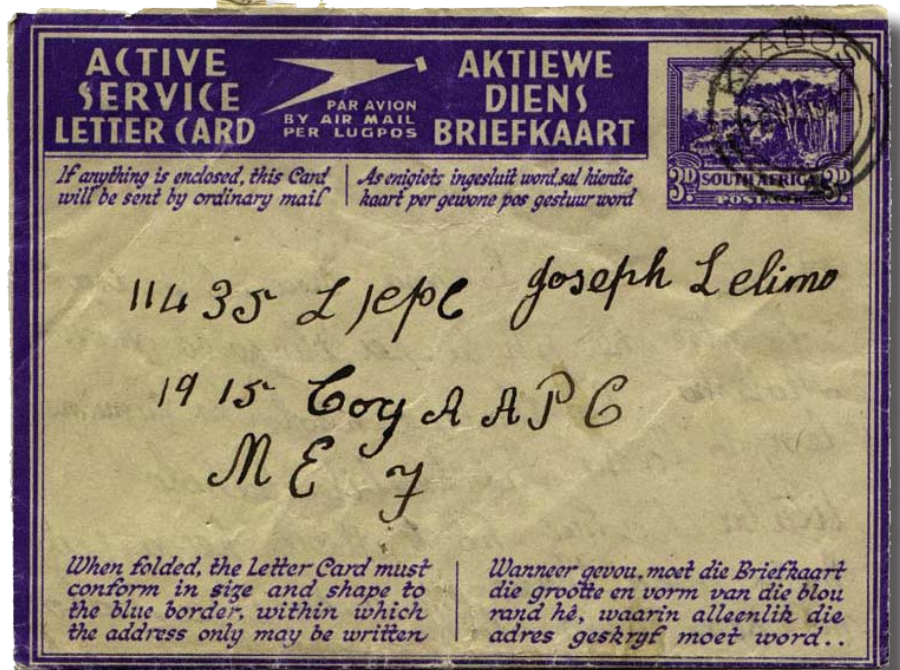 ACTIVE
SERVICE
LETTER CARD
PAR AVION
BY AIR MAIL
PER LUGPOS
AKTIEWE
DIENS
BRIEFKAART
3D SOUTH AFRICA 3D
POSTAGE
If anything is enclosed, this Card
will be sent by ordinary mail
As enigiets ingesluit word, sal hierdie
kaart per gewone pos gestuur word
11435 L/cpl Joseph Lelimo
1915 Coy A A P C
M E F
When folded, the Letter Card must
conform in size and shape to
the blue border, within which
the address only may be written
Wanneer gevou, moet die Briefkaart
die grootte en vorm van die blou
rand hê, waarin alleenlik die
adres geskryf moet word..